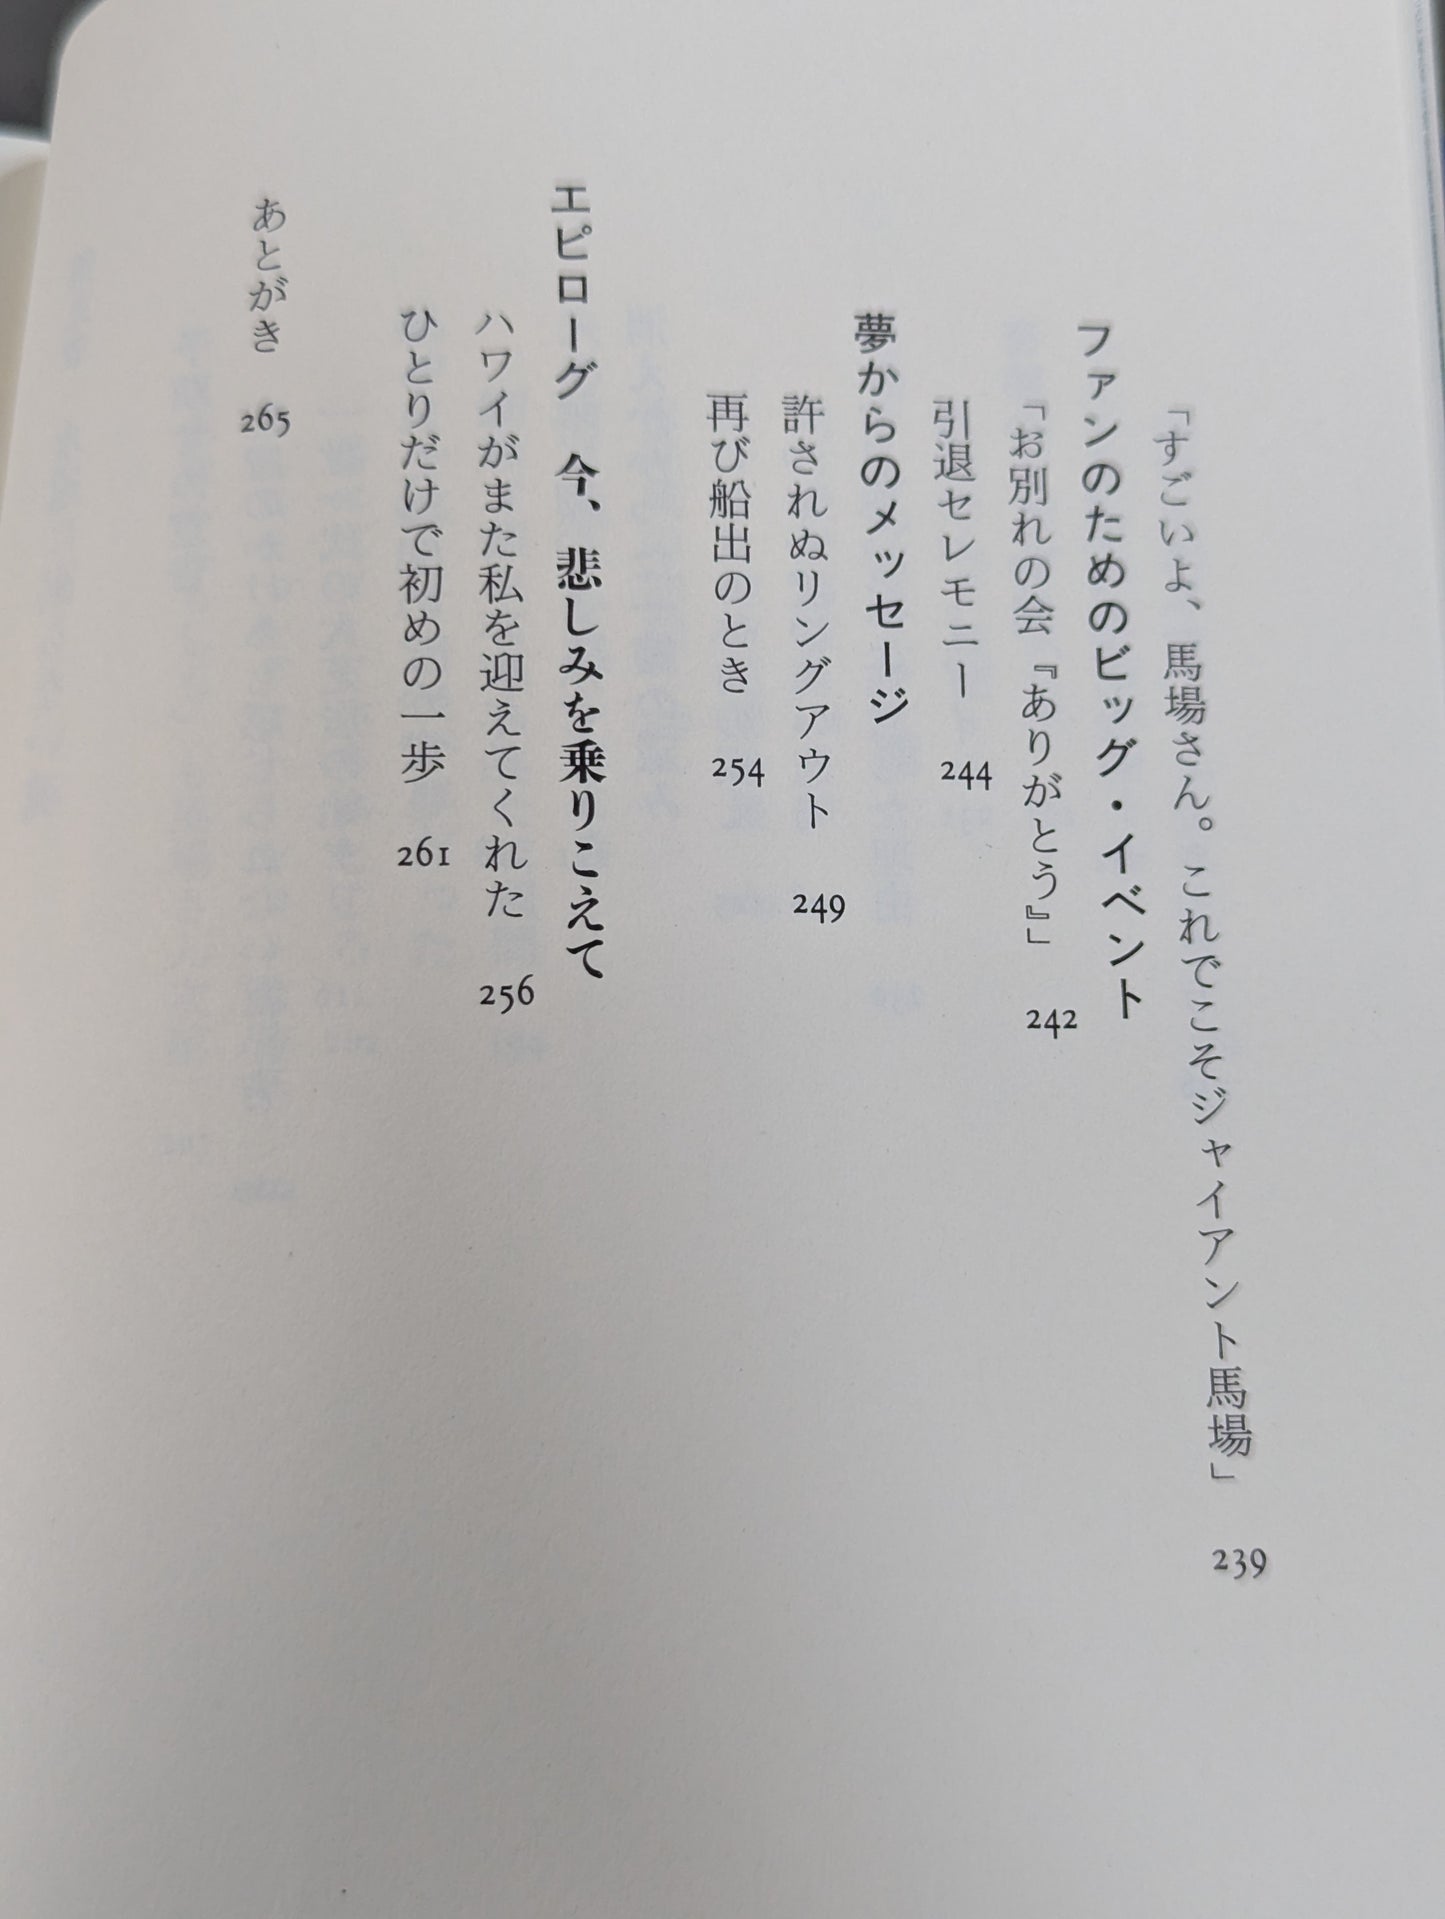 「すごいよ、馬場さん。これでこそジャイアント馬場」 239
ファンのためのビッグ・イベント
「お別れの会『ありがとう』」 242
引退セレモニー 244
夢からのメッセージ
許されぬリングアウト 249
再び船出のとき 254
エピローグ 今、悲しみを乗りこえて
ハワイがまた私を迎えてくれた 256
ひとりだけで初めの一歩 261
あとがき 265